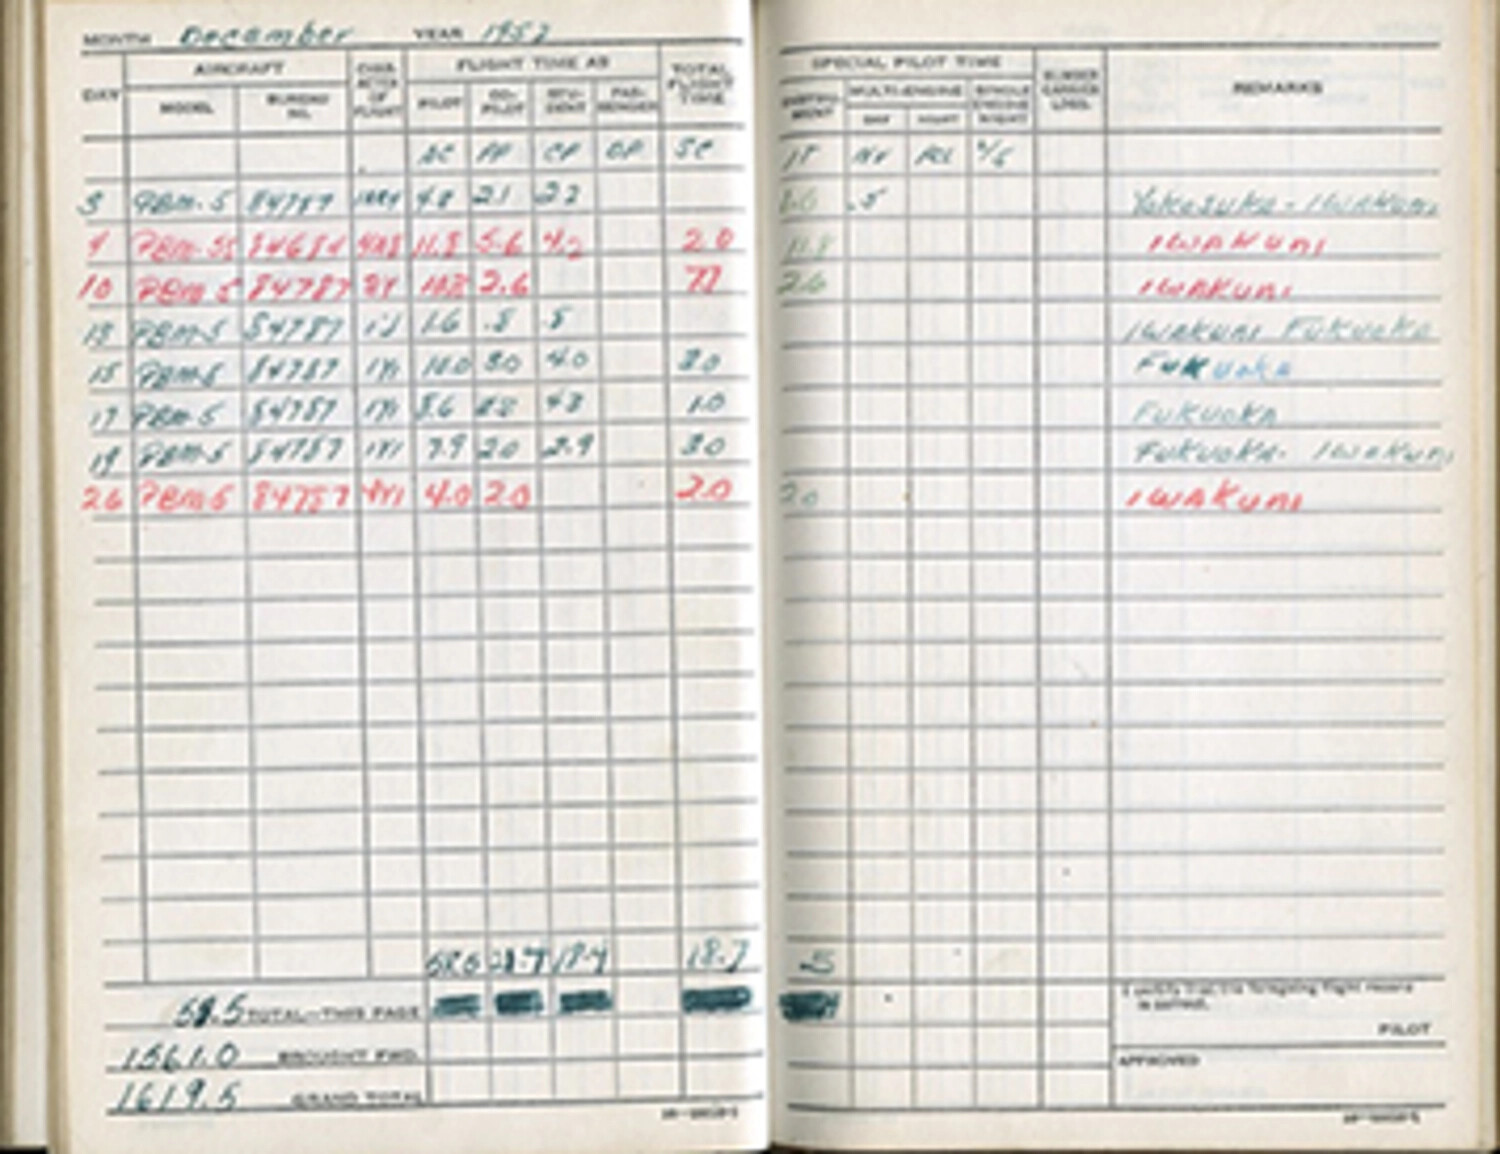 MONTH December YEAR 1952
DAY AIRCRAFT CHARACTER OF FLIGHT FLIGHT TIME AS TOTAL FLIGHT TIME
MODEL BUREAU NO. PILOT CO-PILOT STU-DENT PAS-SENGER
AC PP CP OP SC
3 PBM-5 84787 4.8 2.1 2.2
9 PBM-5S 84684 11.8 5.6 4.2 2.0
10 PBM-5 84787 2.6 7.7
13 PBM-5 84787 1.6 .8 .8
15 PBM-5 84787 10.0 3.0 4.0 3.0
17 PBM-5 84787 8.6 1.0
19 PBM-5 84787 7.9 2.0 2.9 3.0
26 PBM-5 84787 4.0 2.0 2.0
58.5 18.4 18.7
58.5 TOTAL—THIS PAGE
1561.0 BROUGHT FWD.
1619.5 GRAND TOTAL
SPECIAL PILOT TIME NUMBER CARRIER LDGS. REMARKS
INSTRU-MENT MULTI-ENGINE SINGLE ENGINE NIGHT
DAY NIGHT
.5 Yokosuka - Iwakuni
11.8 IWAKUNI
2.6 IWAKUNI
IWAKUNI FUKUOKA
FUKUOKA
FUKUOKA
FUKUOKA - IWAKUNI
2.0 IWAKUNI
.5
I certify that the foregoing flight record is correct.
PILOT
APPROVED